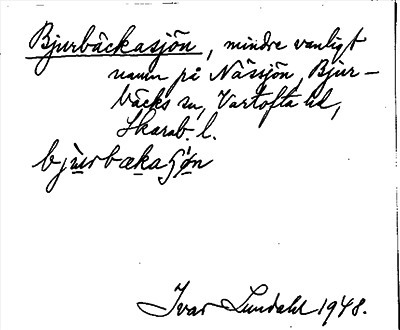 Bjurbäckasjön, mindre vanligt
namn på Nässjön, Bjur-
bäcks sn, Vartofta hd,
Skarab. l.
bjurbækaʃön
Ivar Lundahl 1948.